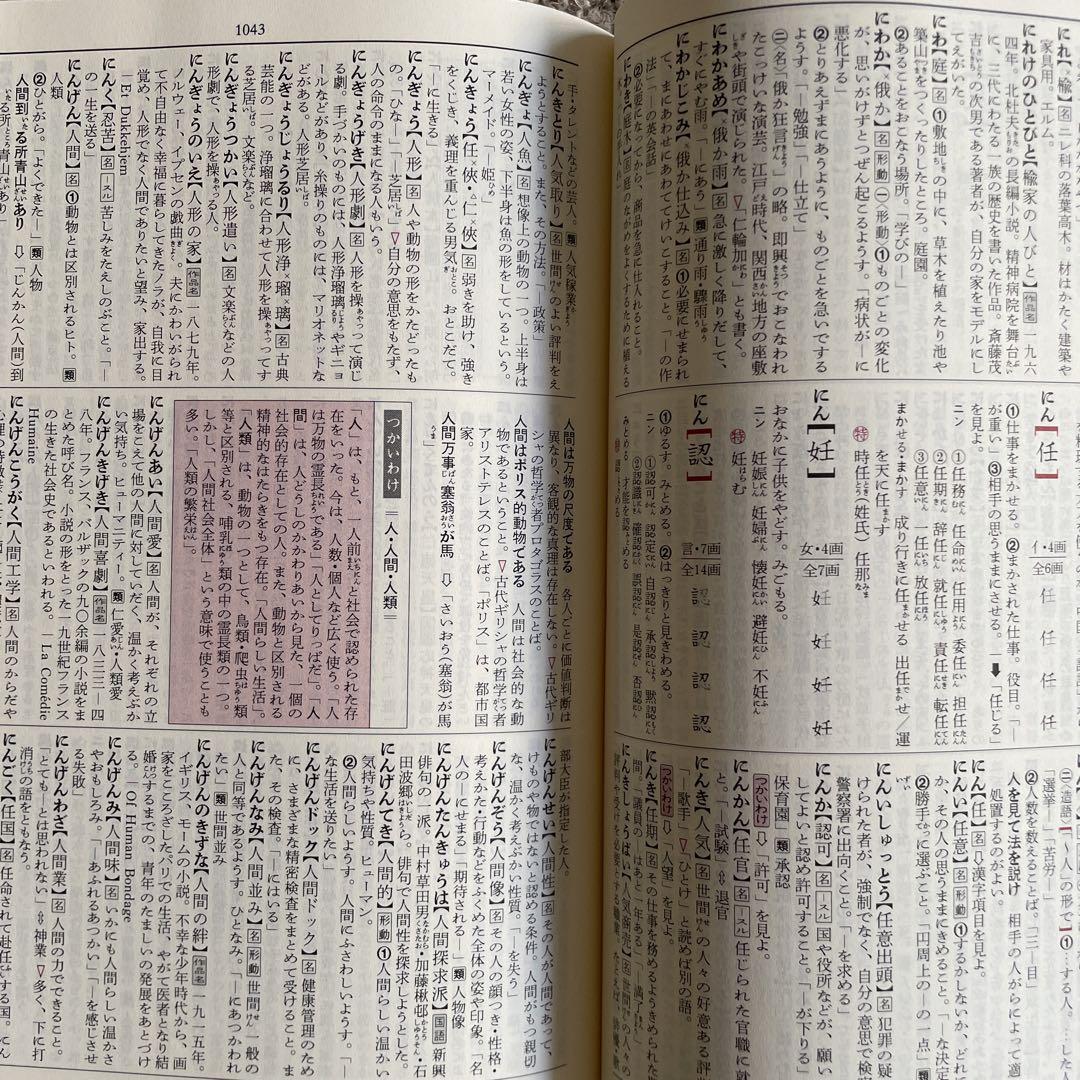 にれ【×楡】名ニレ科の落葉高木。材はかたく建築や
家具用。エルム。
にれけのひとびと【楡家の人びと】作品名一九六
四年。北杜夫の長編小説。精神病院を舞台
に、三代にわたる一族の歴史を書いた作品。斎藤茂
吉の次男である著者が、自分の家をモデルにし
てえがいた。
にわ【庭】名①敷地の中に、草木を植えたり池や
築山をつくったりしたところ。庭園。
②あることをおこなう場所。「学びの―」
にわか【×俄か】名・形動㊀〈形動〉①ものごとの変化
が、思いがけずとつぜん起こるようす。「病状が―に
悪化する」
②とりあえずまにあわせに、ものごとを急いでする
ようす。「―勉強」「―仕立て」
㊁〈名〉「俄か狂言」の略。即興でおこなわれ
たこっけいな演芸。江戸時代、関西地方の座敷
や街頭で演じられた。▽「仁輪加」とも書く。
にわかあめ【×俄か雨】名急に激しく降りだして、
すぐにやむ雨。「―にあう」類通り雨・驟雨
にわかじこみ【×俄か仕込み】名①必要にせまられ
て、まにあわせにあわててけいこすること。「―の作
法」「―の英会話」
②必要になってから、商品を急に仕入れること。
にわき【庭木】名庭のながめをよくするために植える
にん【任】
イ・4画
全6画
任 任 任 任
①仕事をまかせる。②まかされた仕事。役目。「―
が重い」③相手の思うままにさせる。➡「任じる」
を見よ
ニン ①任務 任命 任用 委任 担任
②任期 辞任 就任 責任 転任
③任意 一任 放任
まかせる・まかす 成り行きに任せる 出任せ／運
を天に任す
特 時任(姓氏) 任那
にん【妊】
女・4画
全7画
妊 妊 妊 妊
おなかに子をやどす。みごもる。
ニン 妊娠 妊婦 懐妊 避妊 不妊
特 妊む
にん【認】
言・7画
全14画
認 認 認 認
①ゆるす。みとめる。②はっきりと見きわめる。
ニン ①認可 認定 自認 承認 黙認
②認識 確認 誤認 是認 否認
みとめる 才能を認める
㊁〈造語〉
②人数を数えることば。「三―目」
人を見て法を説け 相手の人がらによって適
処置するのがよい。
にん【任】名⇨漢字項目を見よ。
にんい【任意】名・形動①するかしないか、どれ
か、その人の思うままにきめること。「―な決定
②勝手に選ぶこと。「円周上の―の一点」類
にんいしゅっとう【任意出頭】名犯罪の疑
られた者が、強制でなく、自分の意思で検察
警察署に出向くこと。「―を求める」
にんか【認可】名・―スル国や役所などが、願い
してよいと認め許可すること。「―が下りる」
保育園」類承認
つかいわけ⇨「許可」を見よ。
にんかん【任官】名・―スル官職に就
と。「―試験」⇔退官
にんき【人気】名世間の人々の好意ある評
「―歌手」▽「ひとけ」と読めば別の語。
つかいわけ⇨「人望」を見よ。
にんき【任期】名その仕事を務めるよう定
間。「議員の―はあと一年ある」「―満了
にんきしょうばい【人気商売】名世間の人々の
評判や受けを必要とする職業。たとえば、俳優・歌
1043
手・タレントなどの芸人。類人気稼業
にんきとり【人気取り】名世間のよい評判をえ
ようとすること。また、その方法。「―政策」
にんぎょ【人魚】名想像上の動物の一つ。上半身は
若い女性の姿、下半身は魚の形をしているという。
マーメイド。「―姫」
にんきょう【任×俠・△仁×俠】名弱きを助け、強き
をくじき、義理を重んじる男気。おとこだて。
「―に生きる」
にんぎょう【人形】名①人や動物の形をかたどったも
の。「ひな―」「―芝居」▽自分の意思をもたず、
人の命令のままになる人もいう。
にんぎょうげき【人形劇】名人形を操って演じ
る劇。手づかいのものには、人形浄瑠璃やギニョ
ールなどがあり、糸操りのものには、マリオネットな
どがある。人形芝居。
にんぎょうじょうるり【人形浄×瑠×璃】名古典
芸能の一つ。浄瑠璃に合わせて人形を操ってす
る芝居。文楽など。
にんぎょうつかい【人形遣い】名文楽などの人
形劇で、人形を操る人。
にんぎょうのいえ【人形の家】作品名一八七九年。
ノルウェー、イプセンの戯曲。夫にかわいがられ
て不自由なく幸福に暮らしてきたノラが、自我に目
覚め、人形でなく人間でありたいと望み、家出する。
Et Dukkehjem
にんく【忍苦】名・―スル苦しみをたえしのぶこと。「―
の一生を送る」
にんげん【人間】名①動物とは区別されるヒト。類
人類
②ひとがら。「よくできた―」類人物
人間到る所青山あり ⇨「じんかん(人間)到
る所青山あり」
人間は万物の尺度である 各人ごとに価値判断は
異なり、客観的な真理は存在しない。▽古代ギリ
シャの哲学者プロタゴラスのことば。
人間はポリス的動物である 人間は社会的な動
物であるということ。▽古代ギリシャの哲学者
アリストテレスのことば。「ポリス」は、都市国
家。
人間万事塞翁が馬 ⇨「さいおう(塞翁)が
馬」
つかいわけ ＝人・人間・人類＝
「人」は、もと、一人前と社会で認められた存
在をいった。今は、人数・個人など広く使う。「人
は万物の霊長である」「人としてりっぱだ」。「人
間」は、人どうしのかかわりあいから見た、一個の
社会的存在としての人。また、動物と区別される
精神的なはたらきをもつ存在。「人間らしい生活」。
「人類」は、動物の一つとして、鳥類・爬虫類
等と区別される、哺乳類の中の霊長類の一つ。
しかし、「人間社会全体」という意味で使うことも
多い。「人類の繁栄」。
にんげんあい【人間愛】名人間が、それぞれの立
場をこえて他の人間に対していだく、温かく考えぶか
い気持ち。ヒューマニティー。類仁愛・人類愛
にんげんきげき【人間喜劇】作品名一八三三―四
八年。フランス、バルザックの九〇余編の小説をま
とめた呼び名。小説の形をとった一九世紀フランス
の生きた社会史であるといわれる。La Comédie
Humaine
にんげんこうがく【人間工学】名人間のからだや
部大臣が指定した人。
にんげんせい【人間性】名その人が人間であって、
けものや物ではないと認める条件。人間がもつ親切
な、温かく考えぶかい性質。「―を失う」
にんげんぞう【人間像】名その人の顔つき・性格・
考えかた・行動などをふくめた全体の姿や印象。「名
人の―にせまる」「期待される―」類人物像
にんげんたんきゅうは【人間探求派】国語新興
俳句の一派。中村草田男・加藤楸邨・石
田波郷ら。俳句で人間性を探求しようとした。
にんげんてき【人間的】形動①人間らしい温かい
気持ちや性質。ヒューマン。
②人間らしくあるようす。人間にふさわしいようす。「―
な生活を送りたい」
にんげんドック【人間ドック】名健康管理のため
に、さまざまな精密検査をまとめて受けること。ま
た、その検査。「―にはいる」
にんげんなみ【人間並み】名・形動世間一般の
人と同等であるようす。ひとなみ。「―にあつかわれ
たい」類世間並み
にんげんのきずな【人間の絆】作品名一九一五年。
イギリス、モームの小説。不幸な少年時代から、画
家をこころざしたパリでの生活、やがて医者となり結
婚するまでの、青年のたましいの発展をあとづけ
る。Of Human Bondage
にんげんみ【人間味】名いかにも人間らしい温かさ
やおもしろみ。「―あふれるあつかい」「―を感じさせ
る失敗」
にんげんわざ【人間業】名人間の力でできること。
「とても―とは思われない」⇔神業▽多く、下に打
消しの語をともなう。
にんごく【任国】名任命されて赴任する国。